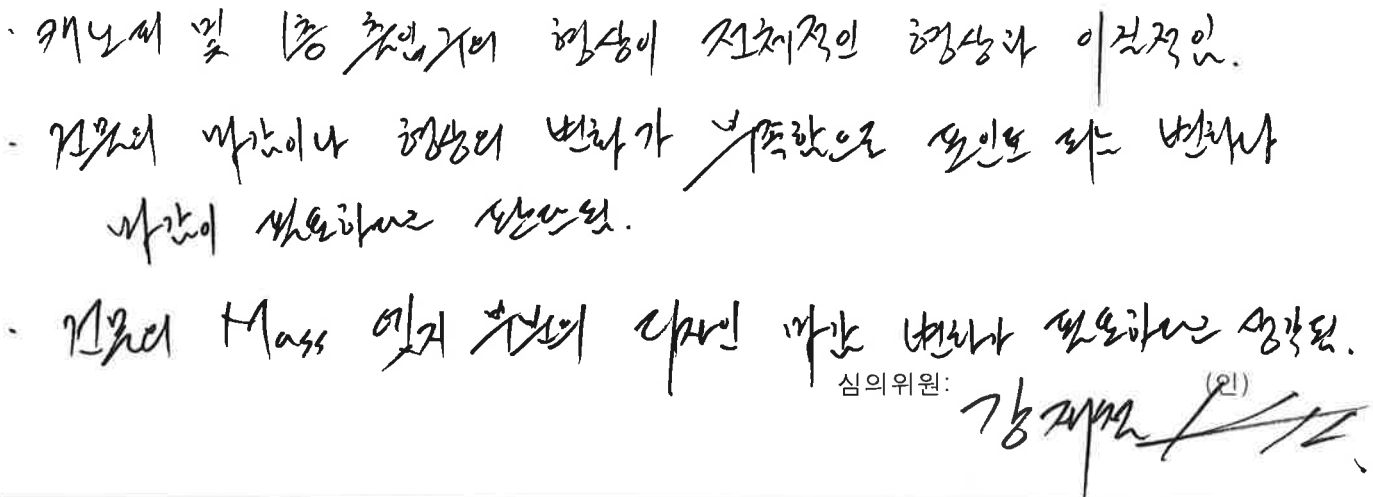 · 캐노피 및 1층 출입구의 형상이 전체적인 형상과 이질적임.
· 건물의 마감이나 형상의 변화가 부족함으로 포인트 되는 변화나
마감이 필요하다고 판단됨.
· 건물의 Mass 엣지 부분의 디자인 마감 변화가 필요하다고 생각됨.
심의위원: 강재 (인)